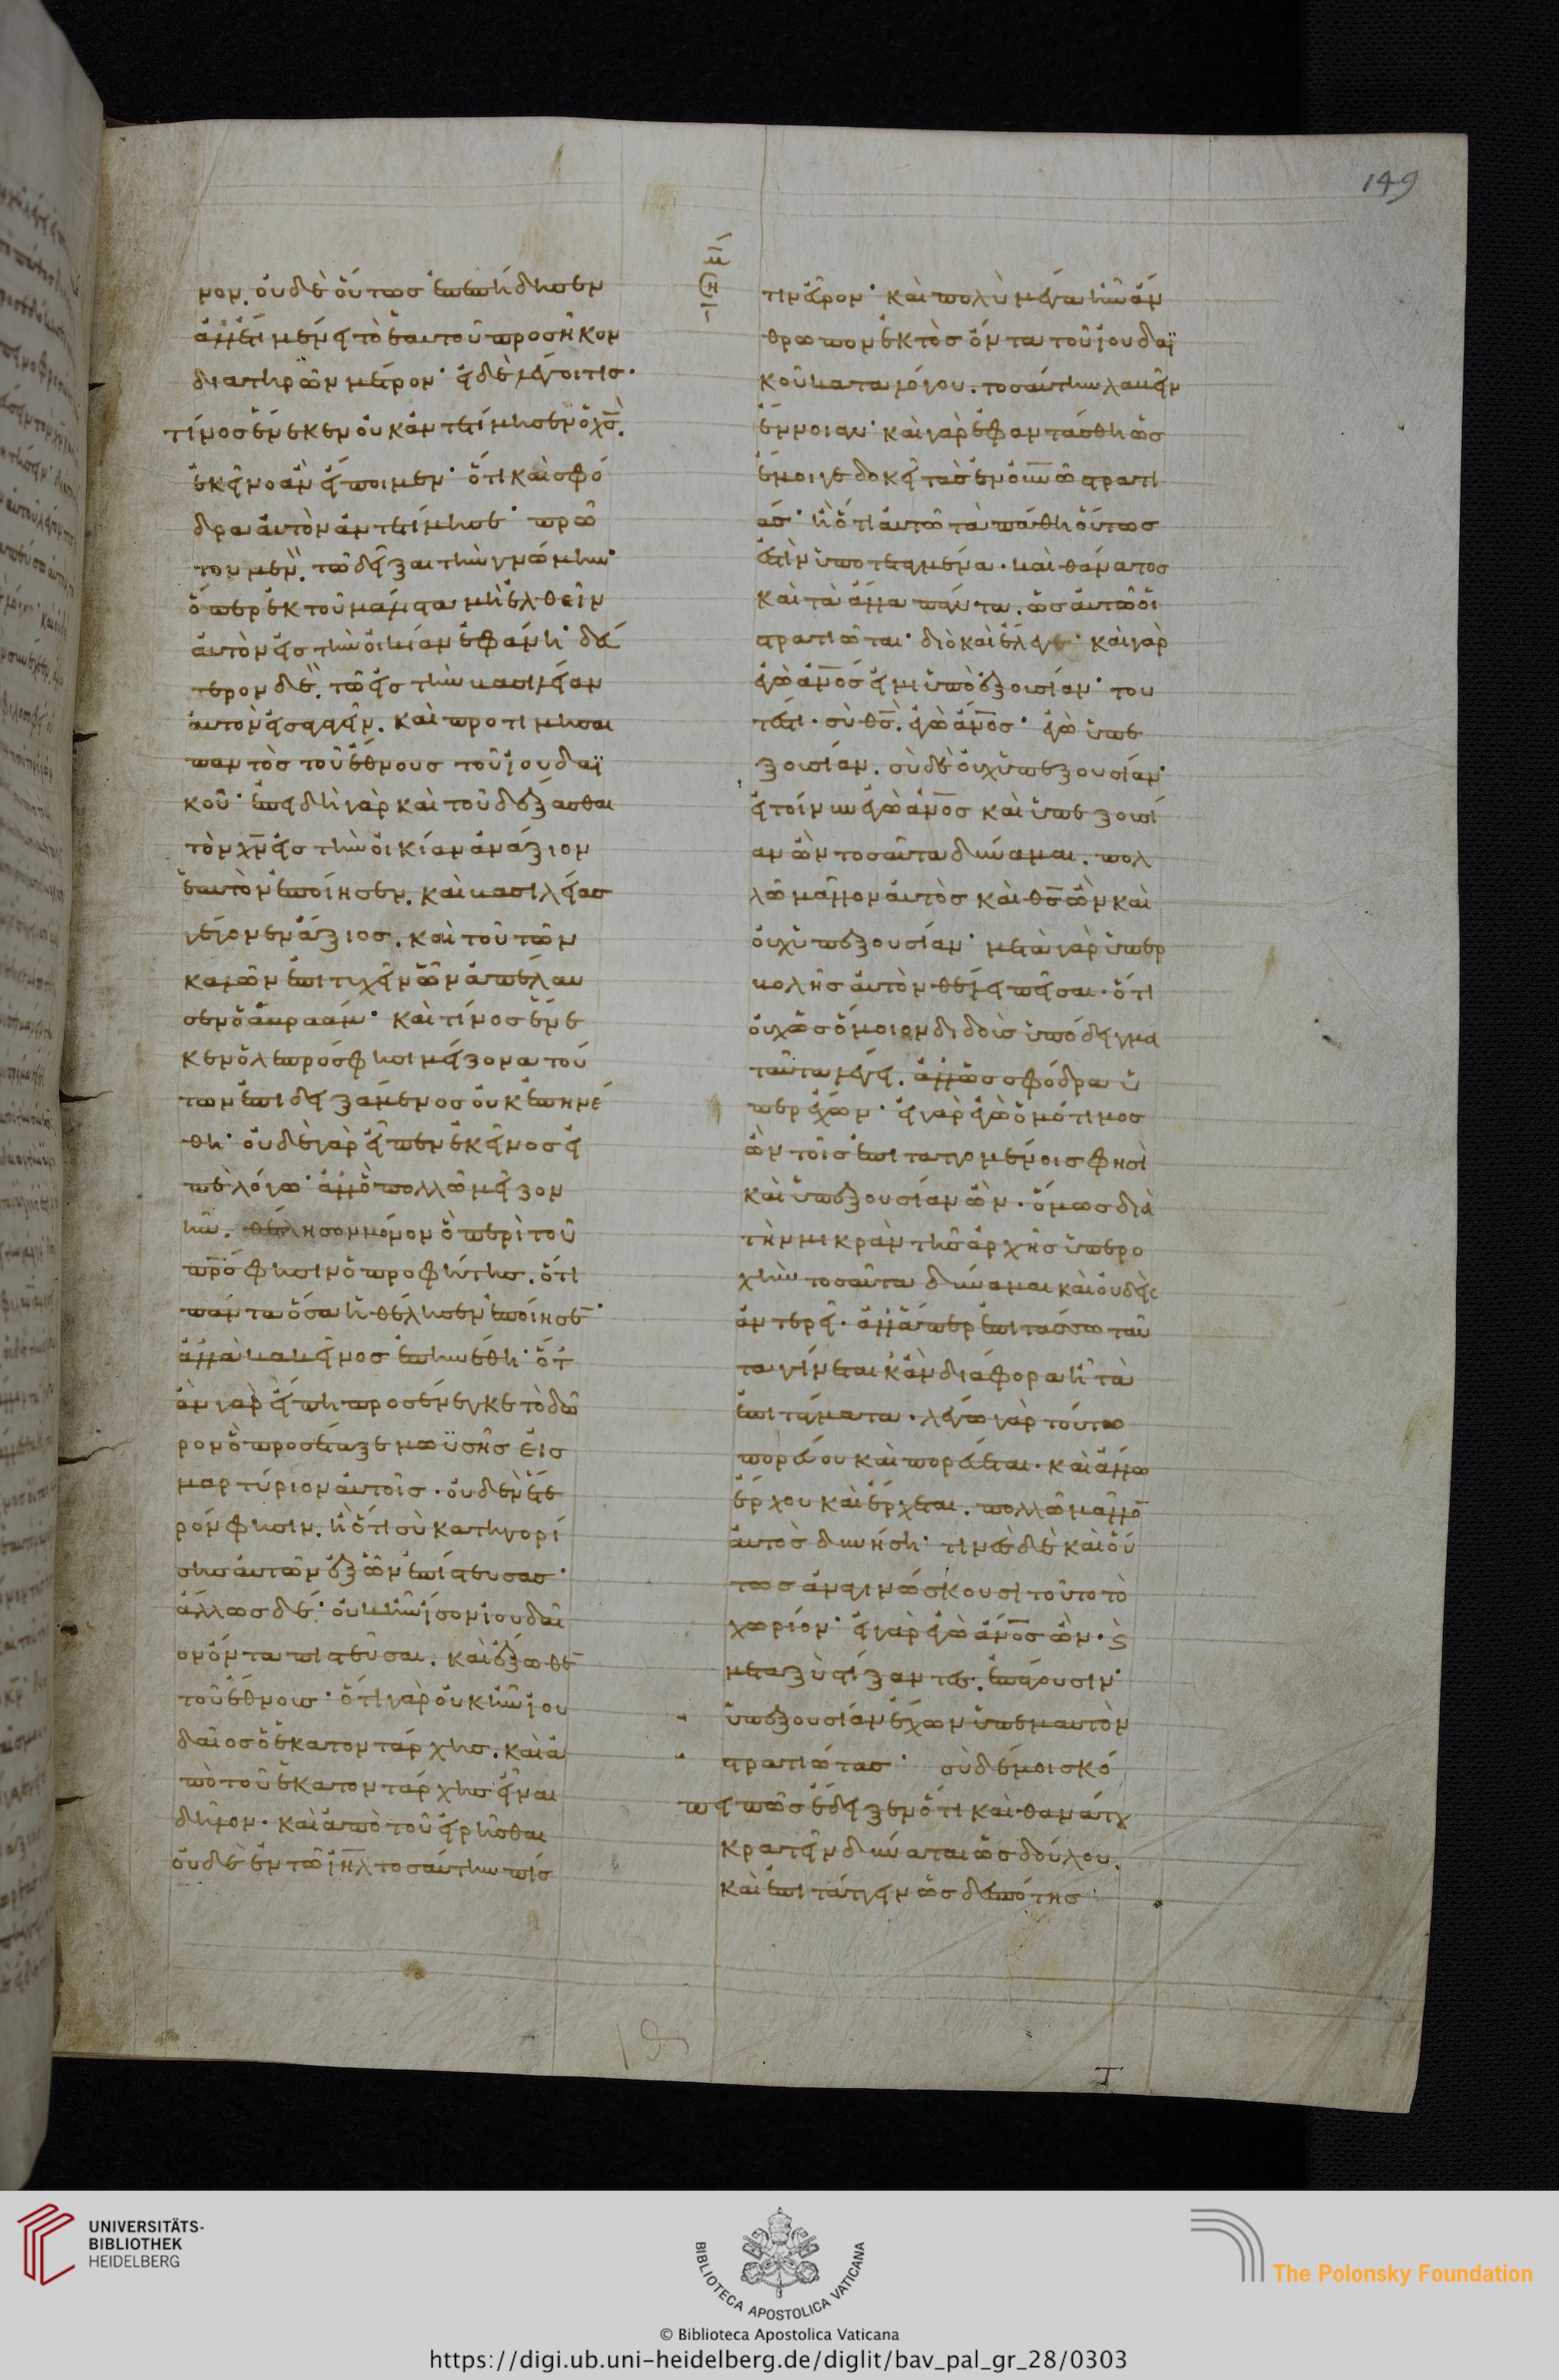 νον. οὐδὲ οὕτως ἐπεπήδησεν
ἀλλ' ἔτι μένει τὸ ἑαυτοῦ προσῆκον
διατηρῶν μέτρον· εἰ δὲ λέγοι τις·
τίνος ἕνεκεν οὐκ ἀντετίμησεν ὁ χ̅ς̅.
ἐκεῖνο ἂν εἴποιμεν· ὅτι καὶ σφό
δρα αὐτὸν ἀντετίμησε· πρῶ
τον μὲν. τῶ δεῖξαι τὴν γνώμην·
ὅπερ ἐκ τοῦ μάλιστα μὴ ἐλθεῖν
αὐτὸν εἰς τὴν οἰκίαν ἐφάνη· δεύ
τερον δὲ. τῶ εἰς τὴν βασιλείαν
αὐτὸν εἰσαγαγεῖν. καὶ προτιμῆσαι
παντὸς τοῦ ἔθνους τοῦ ἰουδαϊ
κοῦ· ἐπειδὴ γὰρ καὶ τοῦ δέξασθαι
τὸν χ̅ν̅ εἰς τὴν οἰκίαν ἀνάξιον
ἑαυτὸν ἐποίησεν. καὶ βασιλείας
γέγονεν ἄξιος. καὶ τοῦ τῶν
καλῶν ἐπιτυχεῖν ὧν ἀπέλαυ
σεν ὁ ἀβραάμ· καὶ τίνος ἕνε
κεν ὁ λεπρός φησι μείζονα τού
των ἐπιδειξάμενος οὐκ ἐπηνέ
θη· οὐδὲ γὰρ εἶπεν ἐκεῖνος εἰ
πὲ λόγω· ἀλλ' ὃ πολλῶ μεῖζον
ἦν. θέλησον μόνον ὃ περὶ τοῦ
π̅ρ̅ό̅ς φησιν ὁ προφήτης. ὅτι
πάντα ὅσα ἠθέλησεν ἐποίησε·
ἀλλὰ κακεῖνος ἐπηνέθη· ὅτ
ἀν γὰρ εἴπη προσένεγκε τὸ δῶ
ρον ὃ προσέταξε μωϋσῆς εἰς
μαρτύριον αὐτοῖς. οὐδὲν ἕτε
ρόν φησιν. ἢ ὅτι σὺ κατηγορή
σης αὐτῶν ἐξ ὧν ἐπίστευσας·
ἄλλως δέ. οὐκ ἦν ἴσον ἰουδαῖ
ον ὄντα πιστεῦσαι. καὶ ἔξωθε
τοῦ ἔθνους· ὅτι γὰρ οὐκ ἦν ἰου
δαῖος ὁ ἑκατοντάρχης. καὶ ἀ
πὸ τοῦ ἑκατοντάρχης εἶναι
δῆλον. καὶ ἀπὸ τοῦ εἰρῆσθαι
οὐδὲ ἐν τῶ ι̅η̅λ̅ τοσαύτην πίσ
149
τιν εὗρον· καὶ πολὺ μέγα ἦν ἄν
θρωπον ἐκτὸς ὄντα τοῦ ἰουδαϊ
κοῦ καταλόγου. τοσαύτην λαβεῖν
ἔννοιαν· καὶ γὰρ ἐφαντάσθη ὡς
ἔμοιγε δοκεῖ τὰς ἐν ο̅υ̅ν̅ω̅ στρατι
άς· ἢ ὅτι αὐτῶ τὰ πάθη οὕτως
ἐστὶν ὑποτεταγμένα. καὶ θάνατος
καὶ τὰ ἄλλα πάντα. ὡς αὐτῶ οἱ
στρατιῶται· διὸ καὶ ἔλεγε· καὶ γὰρ
ἐγὼ α̅ν̅ο̅ς εἰμι ὑπὸ ἐξουσίαν· του
τέστι. σὺ θ̅ς̅. ἐγὼ α̅ν̅ο̅ς· ἐγὼ ὑπ' ἐ
ξουσίαν. σὺ δὲ οὐχ ὑπ' ἐξουσίαν·
εἰ τοίνυν ἐγὼ α̅ν̅ο̅ς καὶ ὑπ' ἐξουσί
αν ὢν τοσαῦτα δύναμαι. πολ
λῶ μᾶλλον αὐτὸς καὶ θ̅ς̅ ὢν καὶ
οὐχ ὑπ' ἐξουσίαν· μετὰ γὰρ ὑπερ
βολῆς αὐτὸν θέλει πεῖσαι. ὅτι
οὐχ ὡς ὅμοιον διδοὺς ὑπόδειγμα
ταῦτα λέγει. ἀλλ' ὡς σφόδρα ὑ
περέχον· εἰ γὰρ ἐγὼ ὁμότιμος
ὢν τοῖς ἐπιταττομένοις φησὶ
καὶ ὑπ' ἐξουσίαν ὢν. ὅμως διὰ
τὴν μικρὰν τῆς ἀρχῆς ὑπερο
χὴν τοσαῦτα δύναμαι καὶ οὐδεὶς
ἀντερεῖ. ἀλλ' ἅπερ ἐπιτάσσω ταῦ
τα γίνεται κἂν διάφορα ἦ τὰ
ἐπιτάγματα. λέγω γὰρ τούτω
πορεύου καὶ πορεύεται. καὶ ἄλλω
ἔρχου καὶ ἔρχεται. πολλῶ μᾶλλο
αὐτὸς δυνήση· τινὲς δὲ καὶ οὕ
τως ἀναγινώσκουσι τοῦτο τὸ
χωρίον· εἰ γὰρ ἐγὼ α̅ν̅ο̅ς ὢν. ϛ
μεταξὺ στίξαντες. ἐπάγουσιν·
ὑπ' ἐξουσίαν ἔχων ὑπ' ἐμαυτὸν
στρατιώτας· σὺ δέ μοι σκό
πει πῶς ἔδειξεν ὅτι καὶ θανάτου
κρατεῖν δύναται ὡς δούλου.
καὶ ἐπιτάττειν ὡς δεσπότης
UNIVERSITÄTS-
BIBLIOTHEK
HEIDELBERG
BIBLIOTECA APOSTOLICA VATICANA
The Polonsky Foundation
© Biblioteca Apostolica Vaticana
https://digi.ub.uni-heidelberg.de/diglit/bav_pal_gr_28/0303